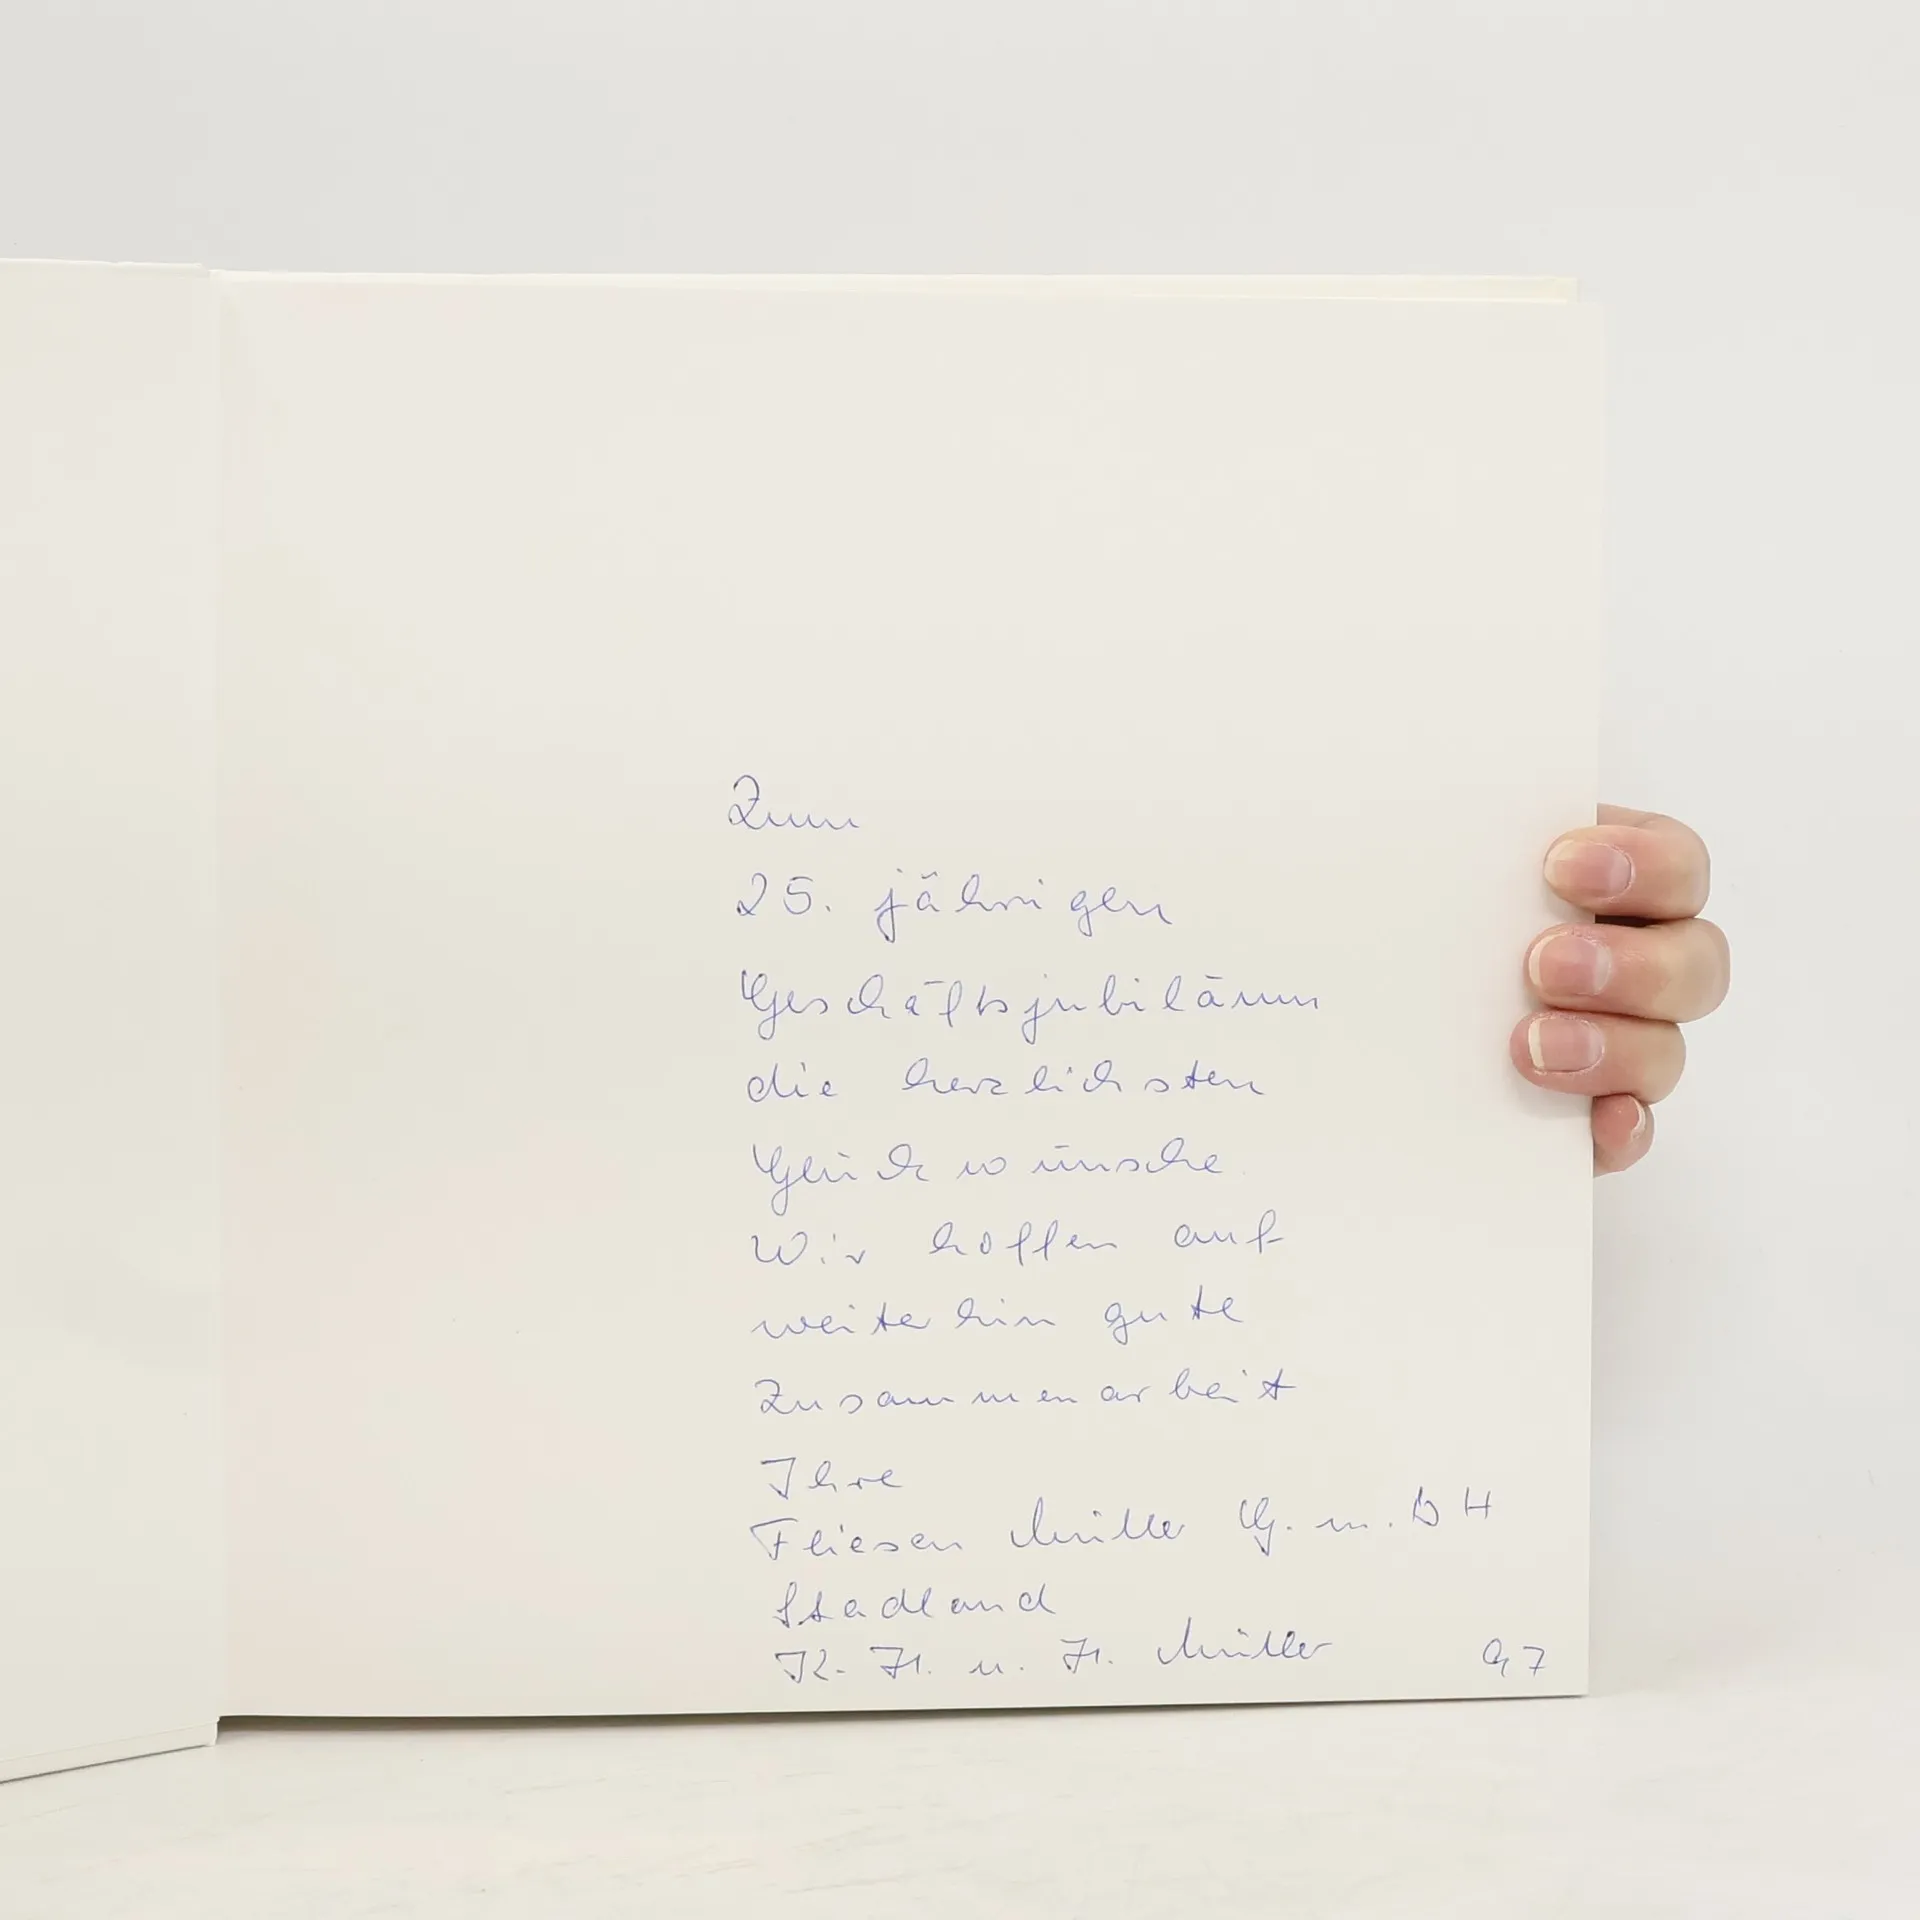 Zum
25. jährigen
Geschäftsjubiläum
die herzlichsten
Glückwünsche
Wir hoffen auf
weiterhin gute
Zusammenarbeit
Ihre
Fliesen Müller G.m.bH
Stadland
K.H. u. H. Müller 97